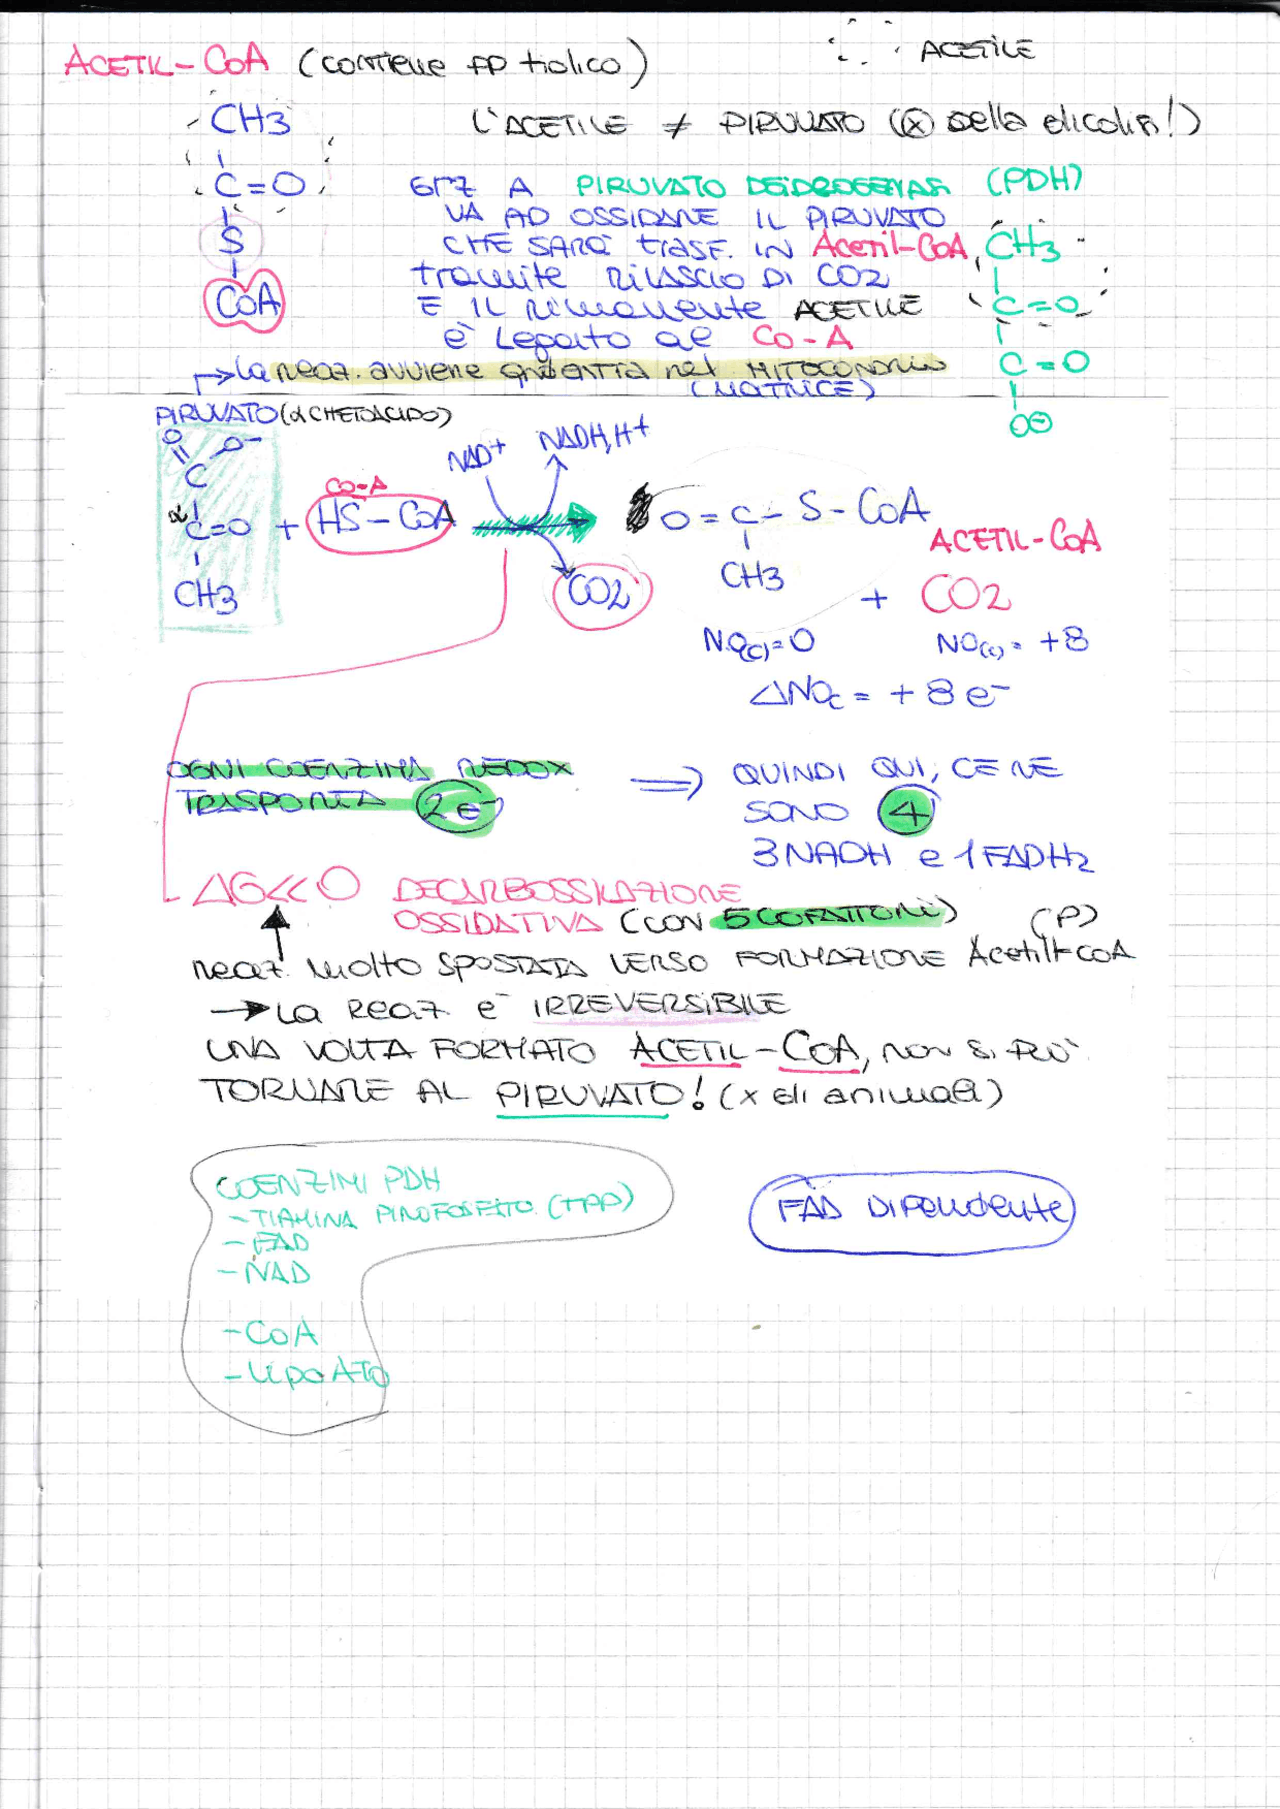 ACETIL-CoA (contiene gp tiolico)
ACETILE
CH3
C=O
S
CoA
L'ACETILE ≠ PIRUVATO (P della glicolisi!)
GRZ A PIRUVATO DEIDROGENASI (PDH)
VA AD OSSIDARE IL PIRUVATO
CHE SARÀ TRASF. IN Acetil-CoA,
tramite rilascio DI CO2
E IL rimanente ACETILE
è Legato al Co-A
CH3
C=O
C=O
O⊖
→ La reaz. avviene quest'ultima nel MITOCONDRIO
(MATRICE)
PIRUVATO (α CHETOACIDO)
O O-
C
α C=O
CH3
+
Co-A
HS-CoA
NAD+
NADH,H+
CO2
O=C-S-CoA
CH3
ACETIL-CoA
+ CO2
N.O(C)=0
NO(C)= +8
ΔNOC = +8e-
OGNI COENZIMA REDOX
TRASPORTA 2e-
⇒ QUINDI QUI, CE NE
SONO 4
3NADH e 1FADH2
ΔG<<0 DECARBOSSILAZIONE
OSSIDATIVA (CON 5 COFATTORI)
(P)
reaz. molto SPOSTATA VERSO FORMAZIONE Acetil-CoA
→ La Reaz. e' IRREVERSIBILE
UNA VOLTA FORMATO ACETIL-CoA, non si può
TORNARE AL PIRUVATO! (x gli animali)
COENZIMI PDH
-TIAMINA PIROFOSFATO (TPP)
-FAD
-NAD
-CoA
-LipoATO
FAD Dipendente